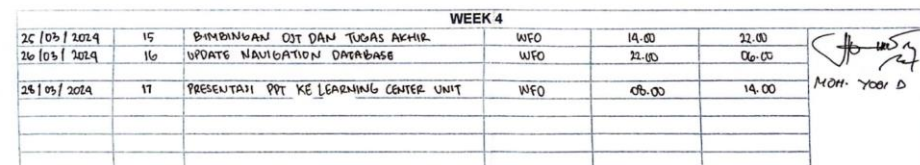 WEEK 4
25/03/2024 15 BIMBINGAN OJT DAN TUGAS AKHIR WFO 14.00 22.00
26/03/2024 16 UPDATE NAVIGATION DATABASE WFO 22.00 06.00
28/03/2024 17 PRESENTASI PPT KE LEARNING CENTER UNIT WFO 08.00 14.00
MOH. YOGI D